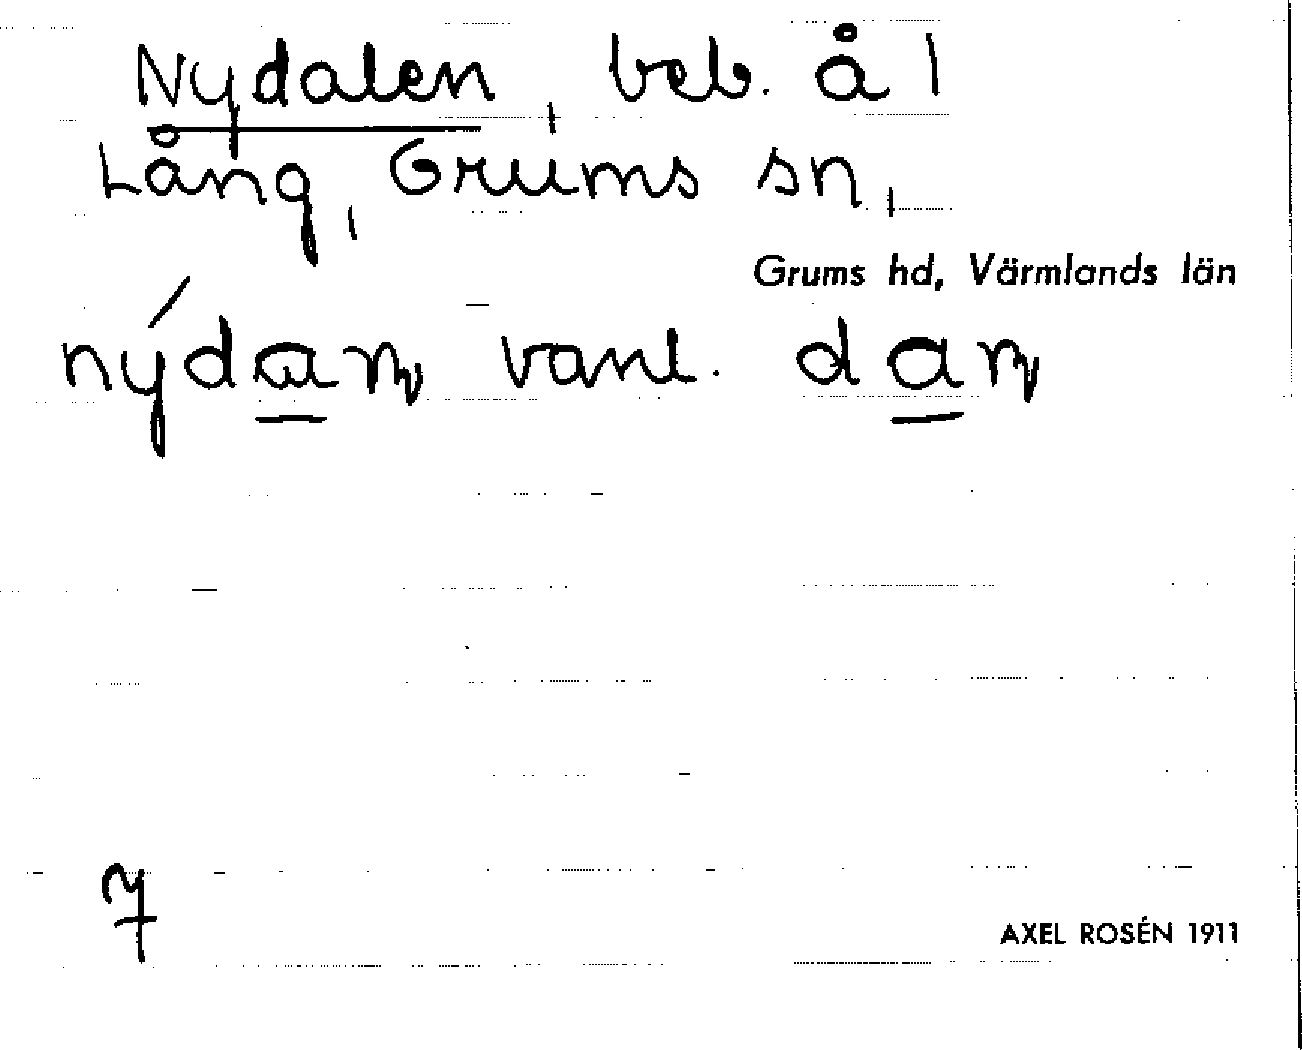 Nydalen, beb. å 1
Lång, Grums sn,
Grums hd, Värmlands län
nýdaɳ vanl. daɳ
7
AXEL ROSÉN 1911